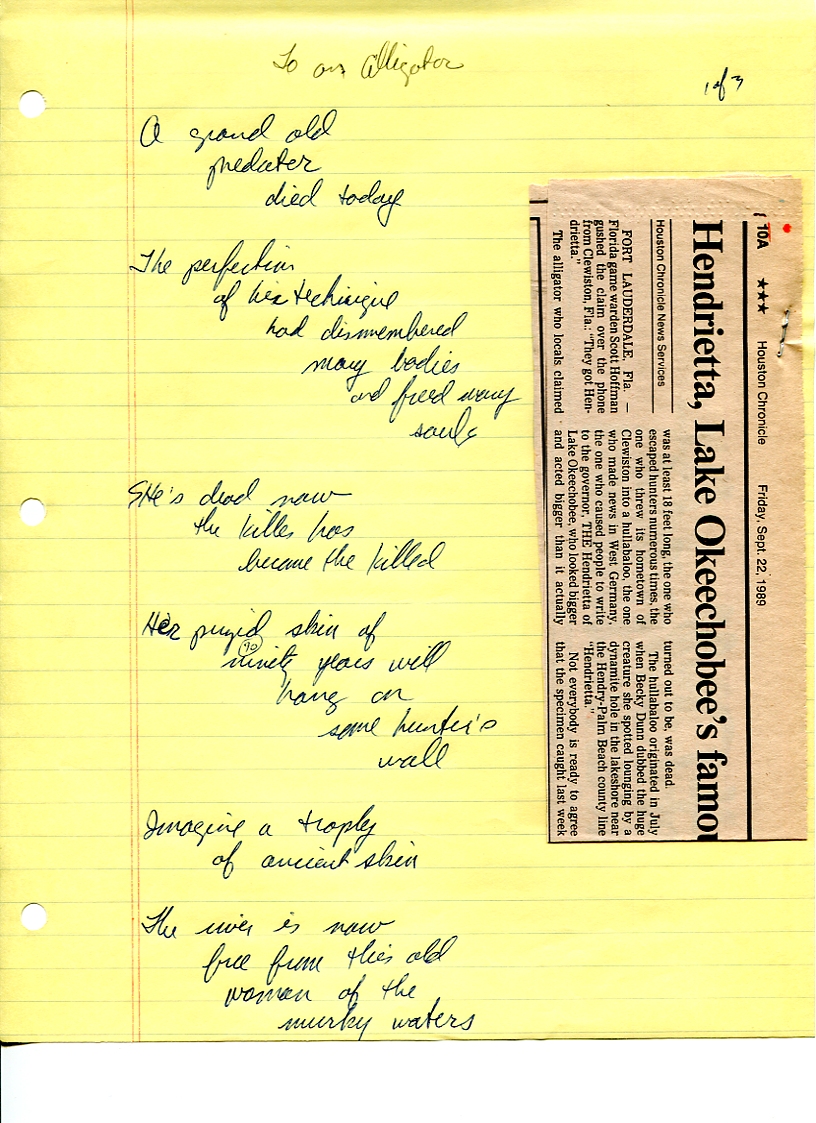 To an Alligator
1 of 3
A grand old
predater
died today
The perfection
of his technique
had dismembered
many bodies
and freed many
souls
SHe's dead now
the killer has
become the killed
Her skin of
90
ninety years will
hang on
some hunter's
wall
Imagine a trophy
of ancient skin
The river is now
free from this old
woman of the
murky waters
10A ★★★ Houston Chronicle Friday, Sept. 22, 1989
Hendrietta, Lake Okeechobee's famou
Houston Chronicle News Services
FORT LAUDERDALE, Fla. —
Florida game warden Scott Hoffman
gushed the claim over the phone
from Clewiston, Fla.: "They got Hen-
drietta."
The alligator who locals claimed
was at least 18 feet long, the one who
escaped hunters numerous times, the
one who threw its hometown of
Clewiston into a hullabaloo, the one
who made news in West Germany,
the one who caused people to write
to the governor, THE Hendrietta of
Lake Okeechobee, who looked bigger
and acted bigger than it actually
turned out to be, was dead.
The hullabaloo originated in July
when Becky Dunn dubbed the huge
creature she spotted lounging by a
dynamite hole in the lakeshore near
the Hendry-Palm Beach county line
"Hendrietta."
Not everybody is ready to agree
that the specimen caught last week